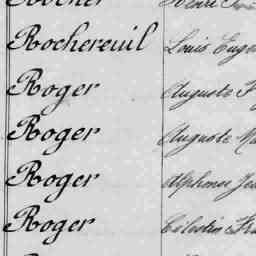 Rochereuil Louis Eugè
Roger Auguste F
Roger Auguste Ma
Roger Alphonse Jea
Roger Célestin Fra